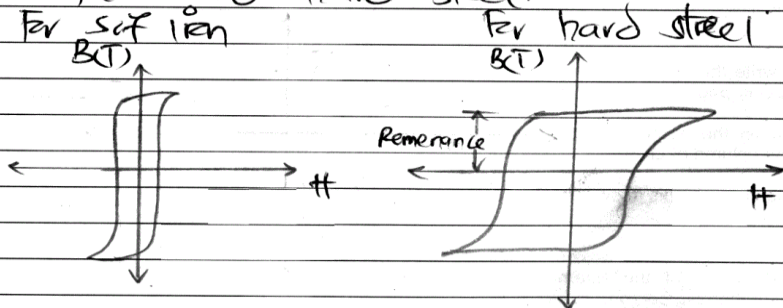 For soft iron For hard steel
B(T) B(T)
Remenance
H H